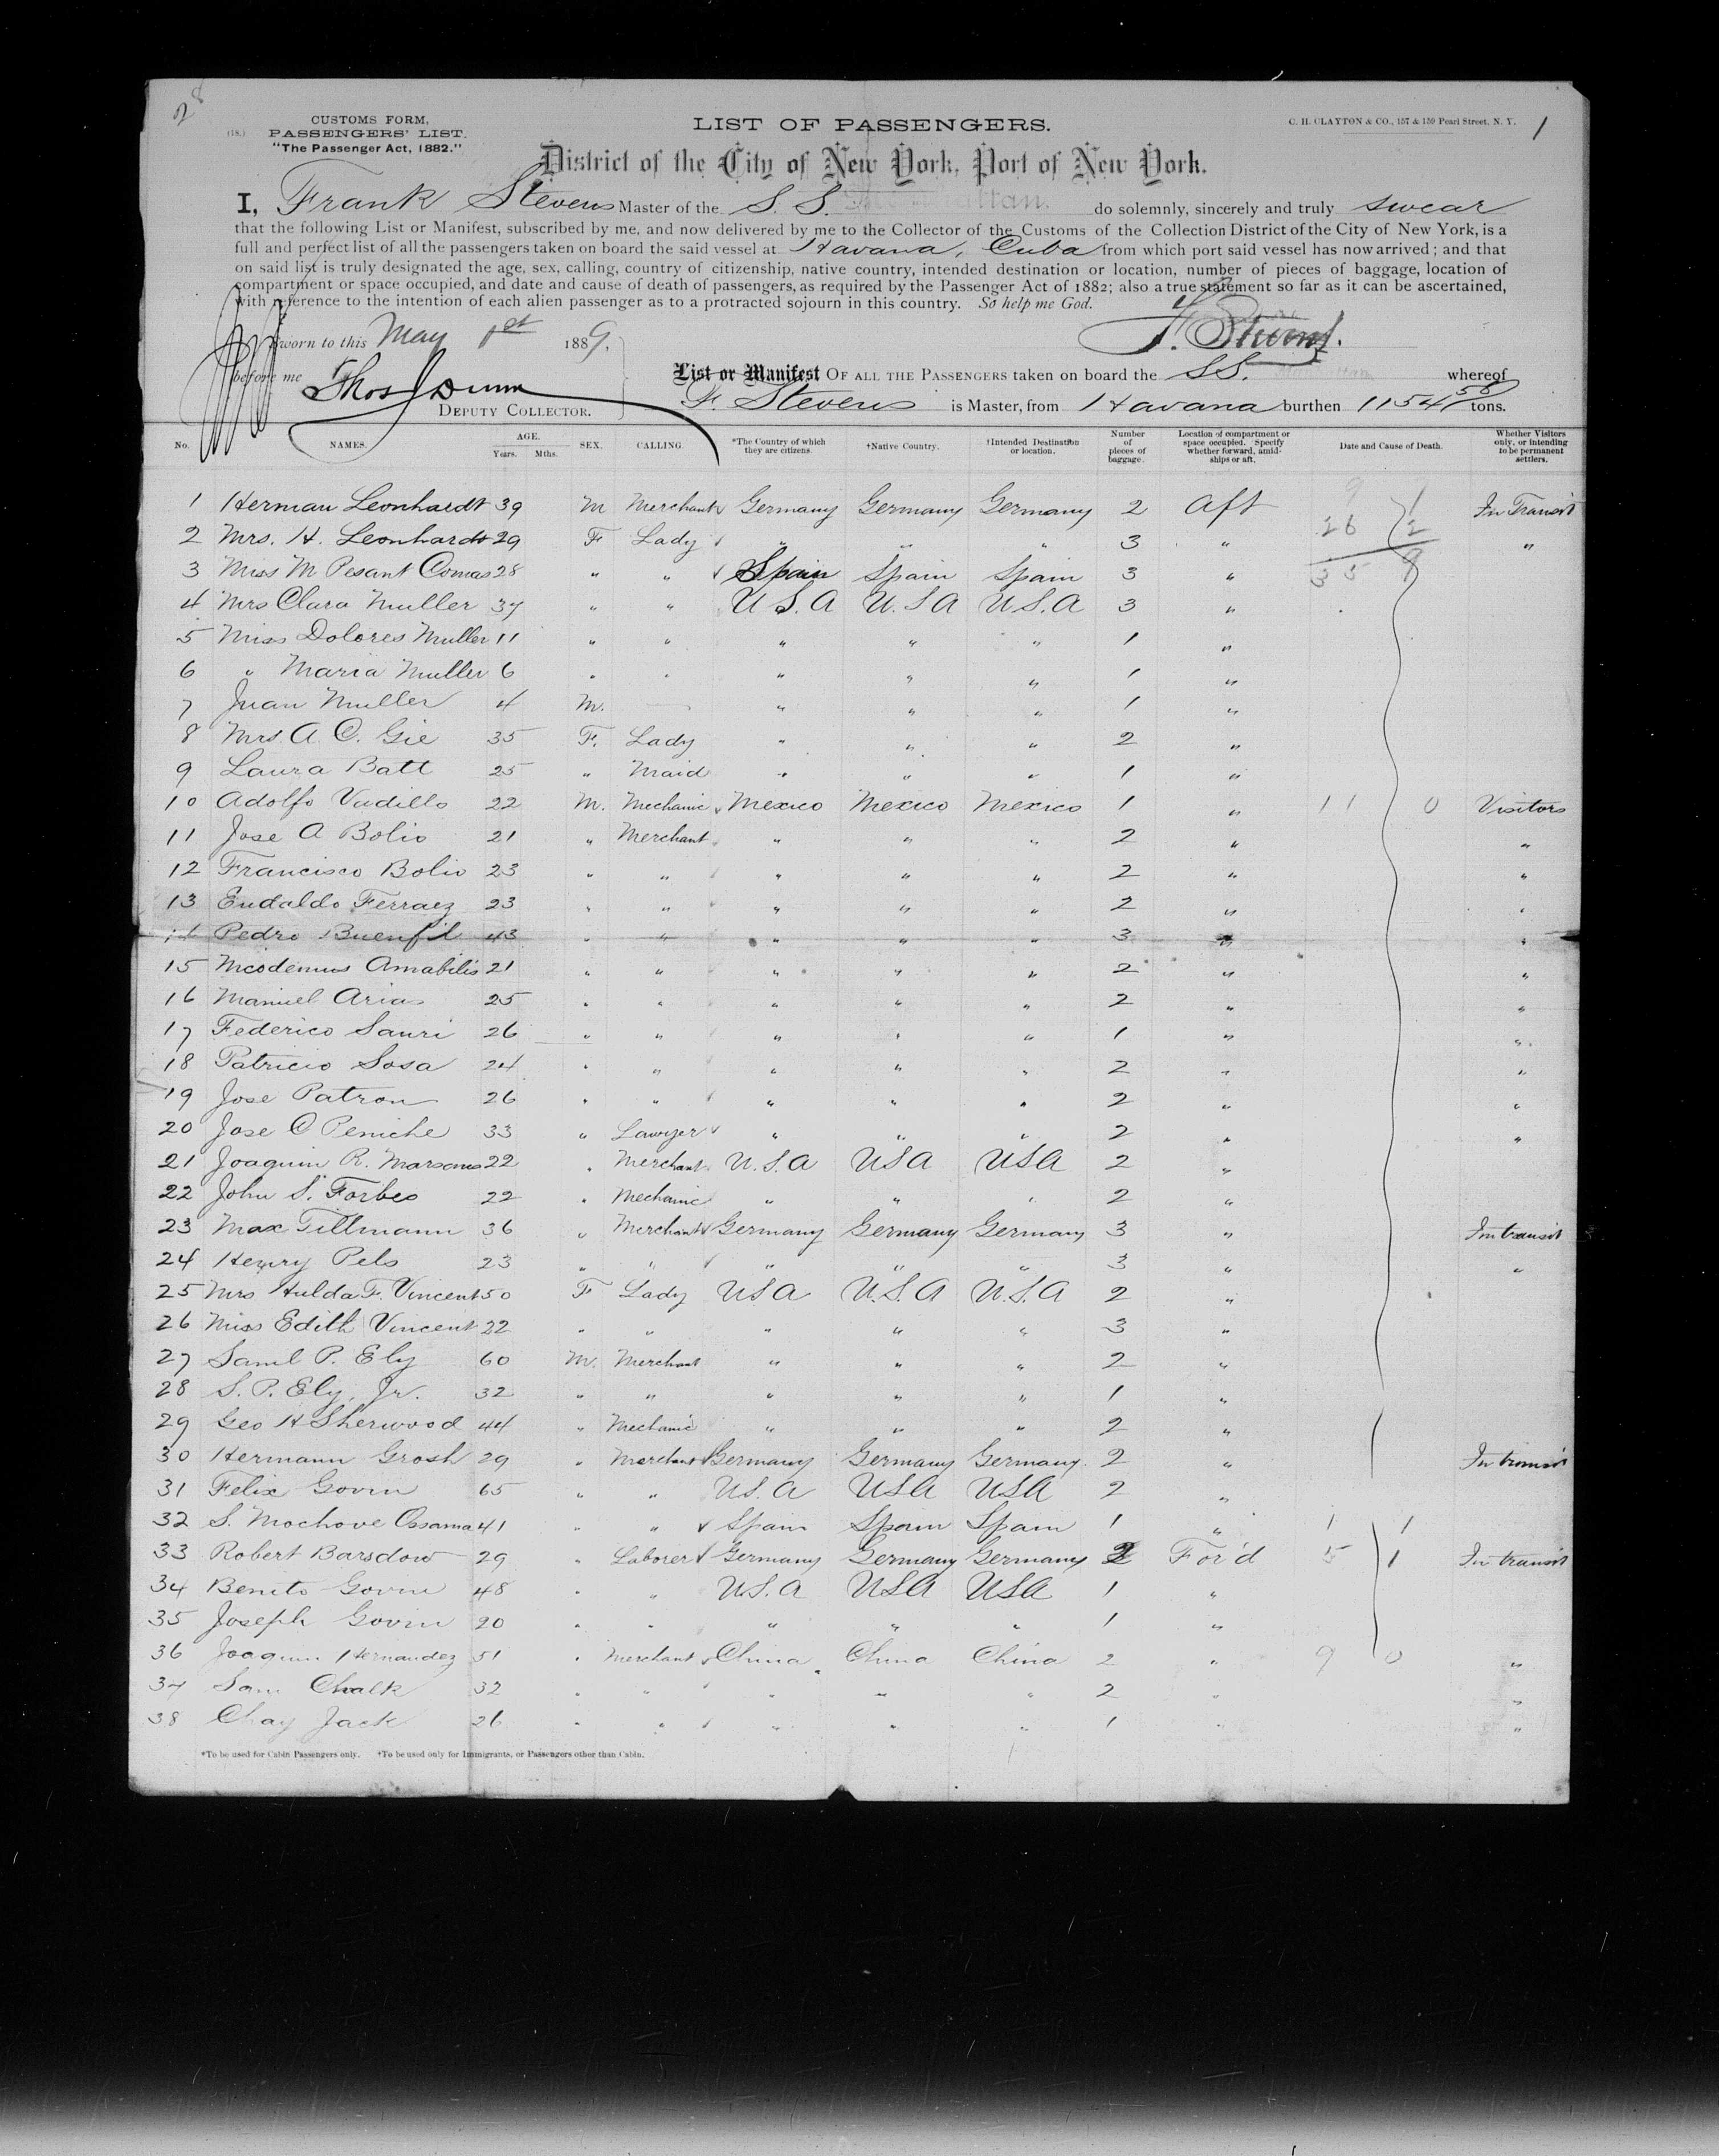 28
CUSTOMS FORM,
(18.) PASSENGERS' LIST.
"The Passenger Act, 1882."
LIST OF PASSENGERS.
C. H. CLAYTON & CO., 157 & 159 Pearl Street, N. Y.
1
District of the City of New York, Port of New York.
I, Frank Stevens Master of the S. S. Manhattan. do solemnly, sincerely and truly swear
that the following List or Manifest, subscribed by me, and now delivered by me to the Collector of the Customs of the Collection District of the City of New York, is a
full and perfect list of all the passengers taken on board the said vessel at Havana, Cuba from which port said vessel has now arrived; and that
on said list is truly designated the age, sex, calling, country of citizenship, native country, intended destination or location, number of pieces of baggage, location of
compartment or space occupied, and date and cause of death of passengers, as required by the Passenger Act of 1882; also a true statement so far as it can be ascertained,
with reference to the intention of each alien passenger as to a protracted sojourn in this country. So help me God.
Sworn to this May 1st 1889,
F. Stevens.
before me Thos J Dunn
DEPUTY COLLECTOR.
List or Manifest OF ALL THE PASSENGERS taken on board the SS. Manhattan whereof
F. Stevens is Master, from Havana burthen 1154 58 tons.
No. NAMES. AGE. Years. Mths. SEX. CALLING. *The Country of which they are citizens. †Native Country. †Intended Destination or location. Number of pieces of baggage. Location of compartment or space occupied. Specify whether forward, amidships or aft. Date and Cause of Death. Whether Visitors only, or intending to be permanent settlers.
1 Herman Leonhardt 39 M Merchant Germany Germany Germany 2 Aft 9 1 In Transit
2 Mrs. H. Leonhardt 29 F Lady " " " 3 " 26 2 "
3 Miss M Pesant Comas 28 " " Spain Spain Spain 3 " 35 9
4 Mrs Clara Muller 37 " " U S. A U. S A U S. A 3 "
5 Miss Dolores Muller 11 " " " " " 1 "
6 " Maria Muller 6 " " " " " 1 "
7 Juan Muller 4 M. — " " " 1 "
8 Mrs. A. C. Gie 35 F. Lady " " " 2 "
9 Laura Batt 25 " Maid " " " 1 "
10 Adolfo Vadillo 22 M. Mechanic Mexico Mexico Mexico 1 " 11 0 Visitors
11 Jose A Bolio 21 " Merchant " " " 2 " "
12 Francisco Bolio 23 " " " " " 2 " "
13 Eudaldo Ferraez 23 " " " " " 2 " "
14 Pedro Buenfil 43 " " " " " 3 " "
15 Nicodemus Amabilis 21 " " " " " 2 " "
16 Manuel Arias 25 " " " " " 2 " "
17 Federico Sauri 26 " " " " " 1 " "
18 Patricio Sosa 24 " " " " " 2 " "
19 Jose Patron 26 " " " " " 2 " "
20 Jose C Peniche 33 " Lawyer " " " 2 " "
21 Joaquin R. 22 " Merchant U. S. A U S A U S A 2 "
22 John S. Forbes 22 " Mechanic " " " 2 "
23 Max Tillmann 36 " Merchant Germany Germany Germany 3 " In transit
24 Henry Pels 23 " " " " " 3 " "
25 Mrs Hulda F. Vincent 50 F Lady U S A U. S. A U. S. A 2 "
26 Miss Edith Vincent 22 " " " " " 3 "
27 Saml P. Ely 60 M. Merchant " " " 2 "
28 S. P. Ely, Jr. 32 " " " " " 1 "
29 Geo H Sherwood 44 " Mechanic " " " 2 "
30 Hermann Grosh 29 " Merchant Germany Germany Germany. 2 " In transit
31 Felix Govin 65 " " U S. A U S A U S A 2 "
32 S. Mochove Ossama 41 " " Spain Spain Spain 1 " 1 1
33 Robert Barsdow 29 " Laborer Germany Germany Germany 2 For'd 5 1 In transit
34 Benito Govin 48 " " U S. A U S A U S A 1 "
35 Joseph Govin 20 " " " " " 1 "
36 Joaquin Hernandez 51 " Merchant China China China 2 " 9 0 "
37 Sam Chalk 32 " " " " " 2 " "
38 Chay Jack 26 " " " " " 1 " "
*To be used for Cabin Passengers only. †To be used only for Immigrants, or Passengers other than Cabin.